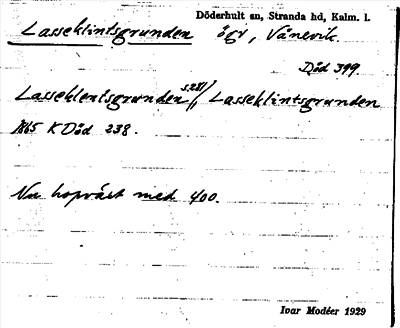 Döderhult sn, Stranda hd, Kalm. l.
Lasseklintsgrunden ögr, Vånevik.
Död 399
Lasseklentsgrunden s. 281/, Lasseklintsgrunden
1865 K Död 238.
Nu hopväxt med 400.
Ivar Modéer 1929